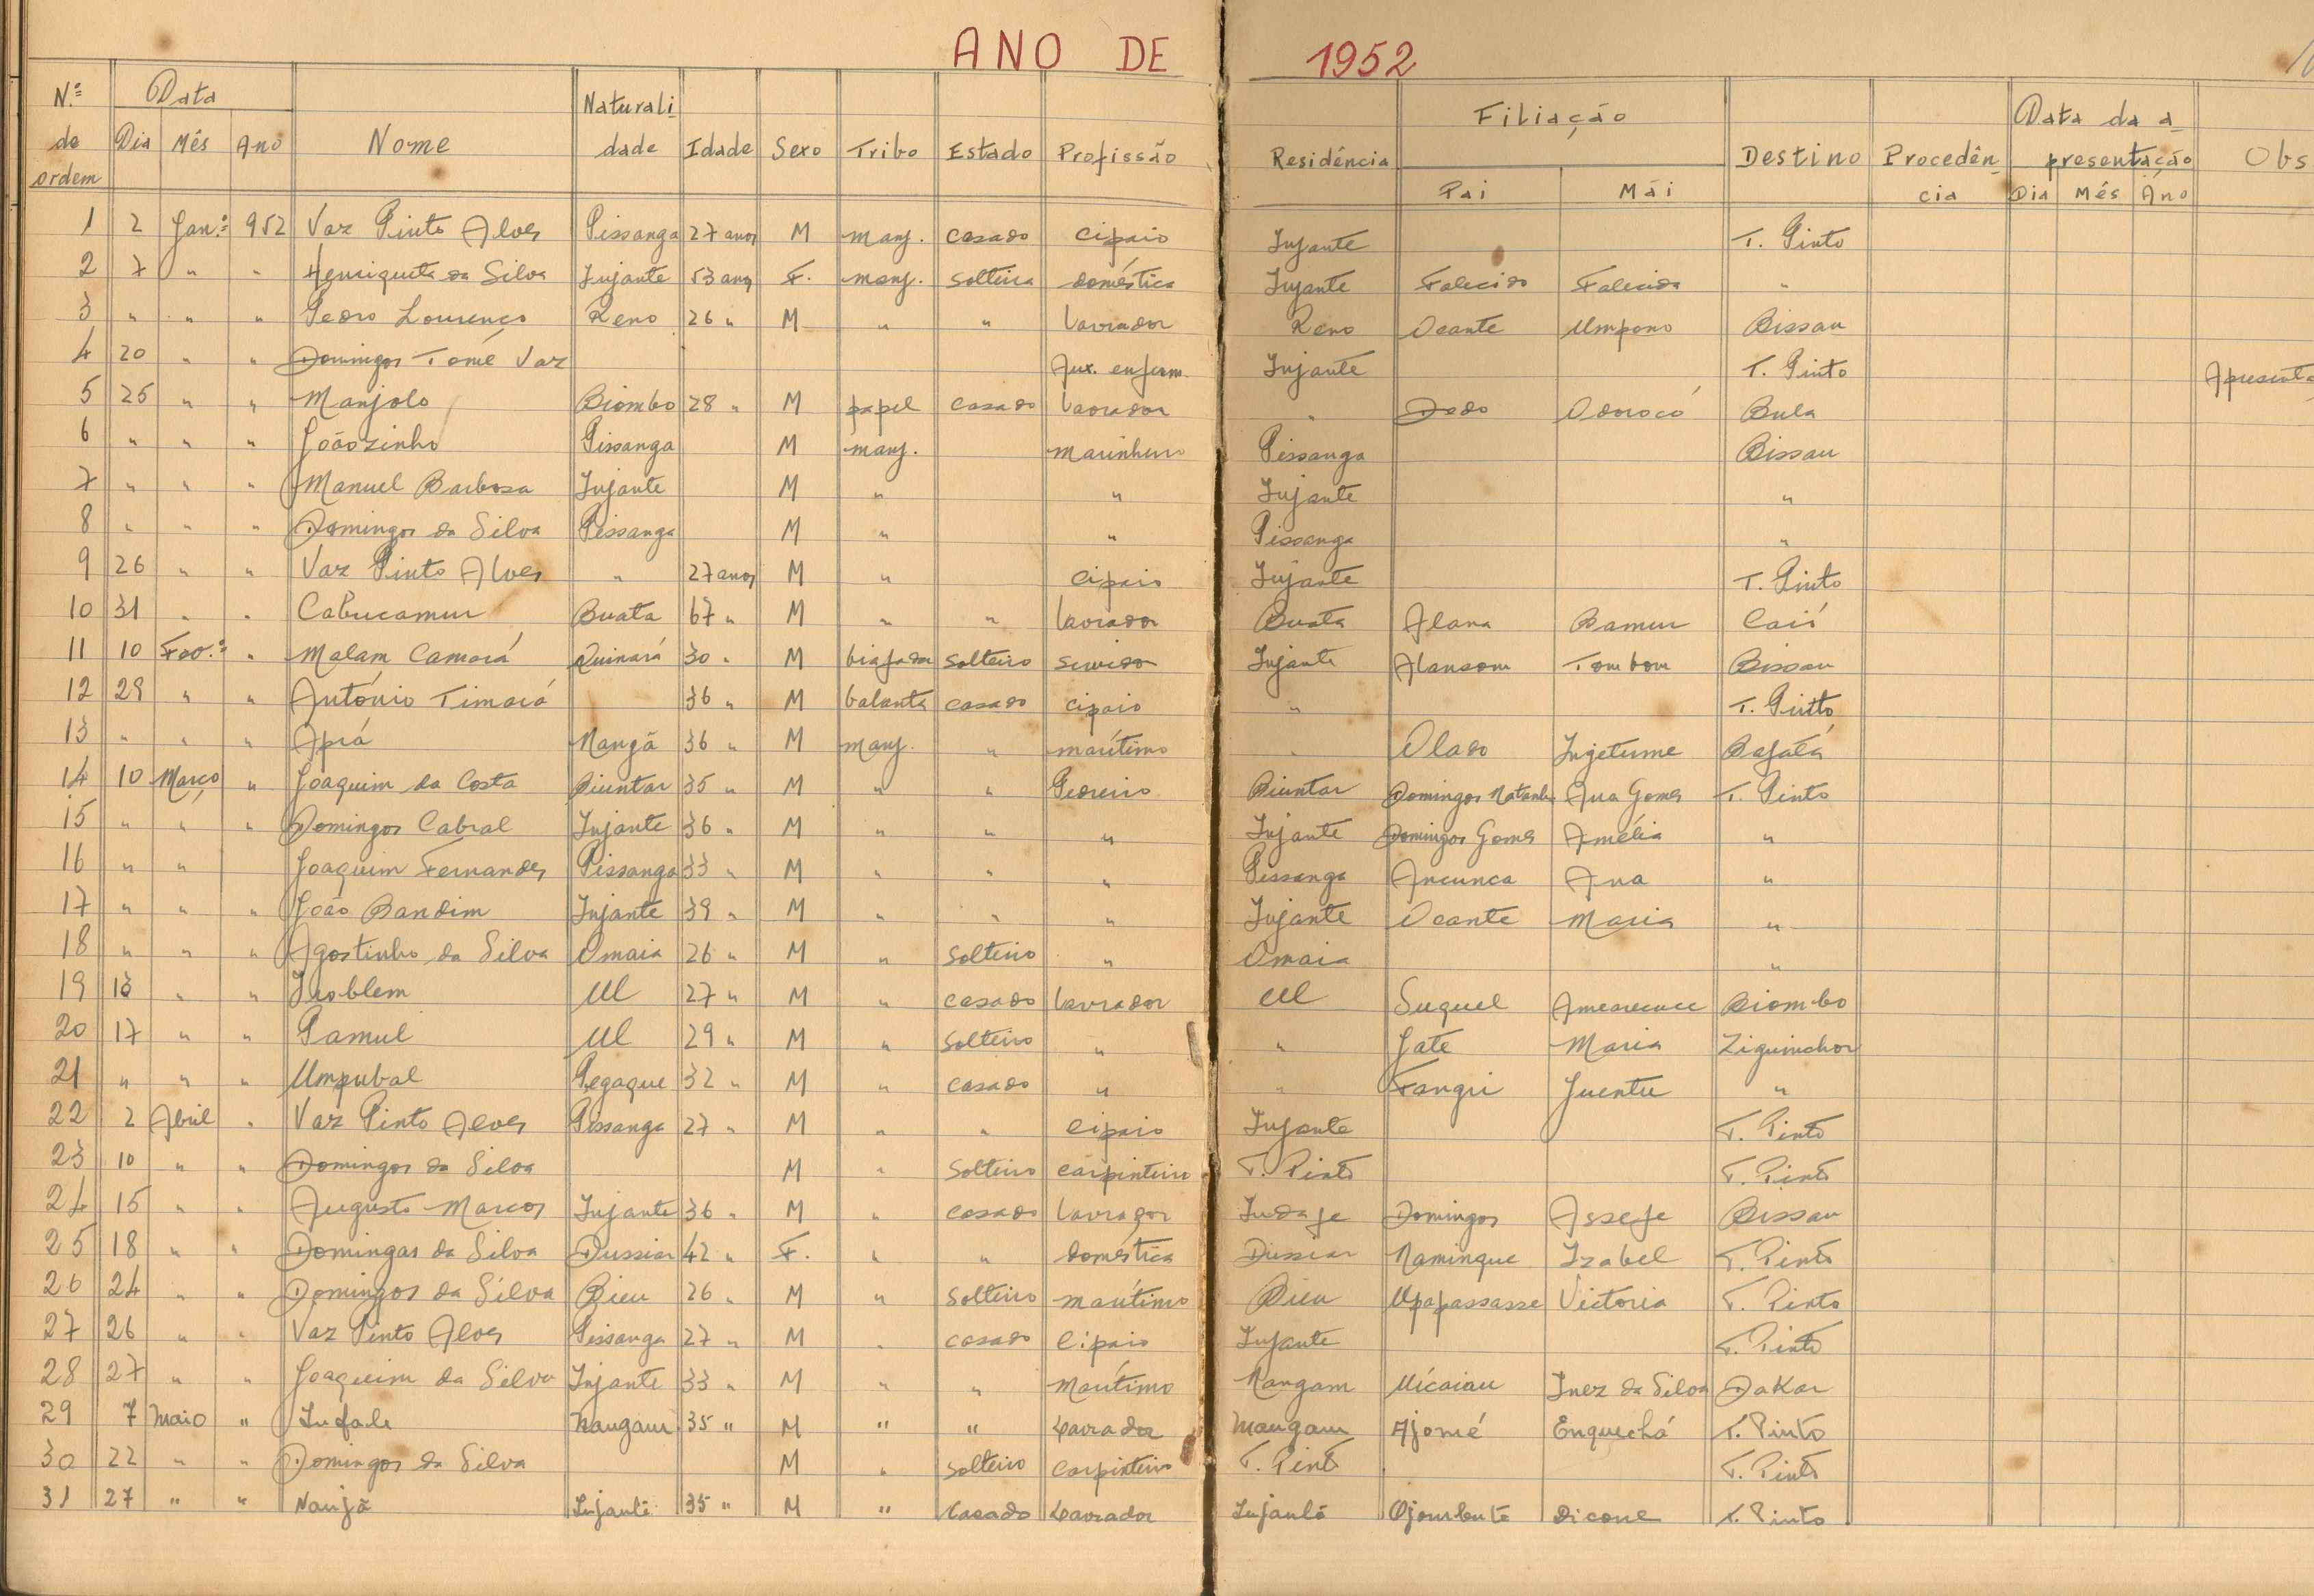 ANO DE 1952
N.º de ordem Data Dia Mês Ano Nome Naturalidade Idade Sexo Tribo Estado Profissão Residência Filiação Pai Mãi Destino Procedência Data da apresentação Dia Mês Ano Obs
1 2 Jan.º 952 Vaz Pinto Alves Pissanga 27 anos M manj. casado cipaio Injante T. Pinto
2 7 " " Henriqueta da Silva Injante 53 anos F. manj. solteira doméstica Injante Falecido Falecida "
3 " " " Pedro Lourenço Reno 26 " M " " lavrador Reno Ocante Umpono Bissau
4 20 " " Domingos Tomé Vaz Aux. enferm. Injante T. Pinto Apresenta
5 25 " " Manjolo Biombo 28 " M papel casado lavrador " Dodo Odorocó Bula
6 " " " Joãozinho Pissanga M manj. marinheiro Pissanga Bissau
7 " " " Manuel Barbosa Injante M " " Injante "
8 " " " Domingos da Silva Pissanga M " " Pissanga "
9 26 " " Vaz Pinto Alves " 27 anos M " cipaio Injante T. Pinto
10 31 " " Cabucamur Buata 67 " M " " lavrador Buata Alana Bamur Caió
11 10 Fev.º " Malam Camará Quinará 30 " M biafada solteiro Injante Alansom Tombom Bissau
12 29 " " António Timará 36 " M balanta casado cipaio " T. Pinto
13 " " " Aprá Nangã 36 " M manj. " marítimo " Olado Injetume Bafatá
14 10 Março " Joaquim da Costa Biuntar 35 " M " " Pedreiro Biuntar Domingos Ana Gomes T. Pinto
15 " " " Domingos Cabral Injante 36 " M " " " Injante Domingos Gomes Amélia "
16 " " Joaquim Fernandes Pissanga 33 " M " " " Pissanga Ancunca Ana "
17 " " " João Bandim Injante 39 " M " " " Injante Ocante Maria "
18 " " " Agostinho da Silva Omaia 26 " M " solteiro " Omaia "
19 13 " " Problem Ul 27 " M " casado lavrador Ul Suquel Biombo
20 17 " " Pamul Ul 29 " M " solteiro " " Jate Maria Ziguinchor
21 " " " Umpubal Pegaque 32 " M " casado " " Fangri Juentu "
22 2 Abril " Vaz Pinto Alves Pissanga 27 " M " " cipaio Injante T. Pinto
23 10 " " Domingos da Silva M " solteiro carpinteiro T. Pinto T. Pinto
24 15 " " Augusto Marcos Injante 36 " M " casado lavrador Indafe Domingos Assefe Bissau
25 18 " " Domingas da Silva Dussiar 42 " F. " " doméstica Dussiar Naminque Izabel T. Pinto
26 24 " " Domingos da Silva Bieu 26 " M " solteiro marítimo Bieu Upapassasse Victoria T. Pinto
27 26 " " Vaz Pinto Alves Pissanga 27 " M " casado cipaio Injante T. Pinto
28 27 " " Joaquim da Silva Injante 33 " M " " marítimo Nangam Uicaiau Inez da Silva Dakar
29 7 Maio " Indafe Nangam 35 " M " " Lavrador Mangam Ajomé Enquechá T. Pinto
30 22 " " Domingos da Silva M " solteiro carpinteiro T. Pinto T. Pinto
31 27 " " Nanjã Injante 35 " M " Casado Lavrador Injanté Ojombonte Dicone T. Pinto